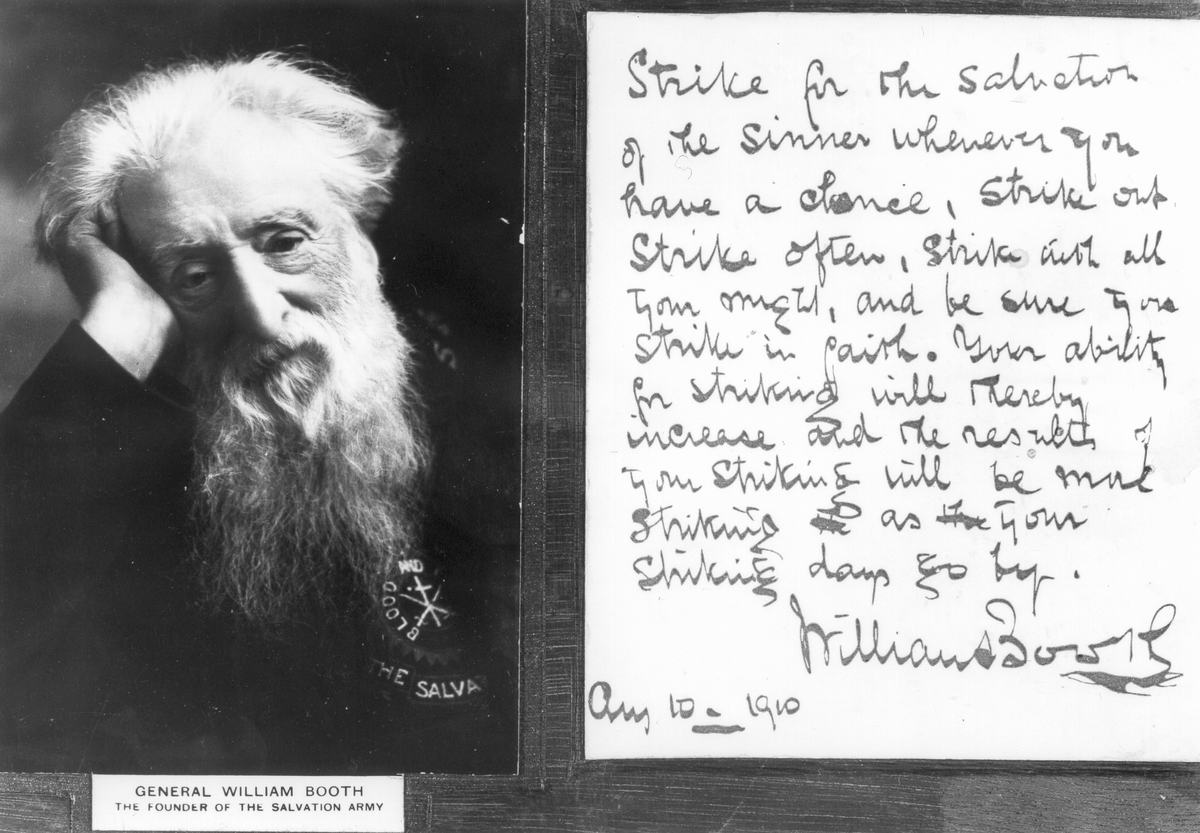 AND
BLOOD
THE SALVA
GENERAL WILLIAM BOOTH
THE FOUNDER OF THE SALVATION ARMY
Strike for the salvation
of the sinner whenever you
have a chance, Strike out
Strike often, Strike with all
your might, and be sure you
Strike in faith. Your ability
for striking will thereby
increase and the results of
your striking will be more
striking as your
striking days go by.
William Booth
Aug 10 - 1910